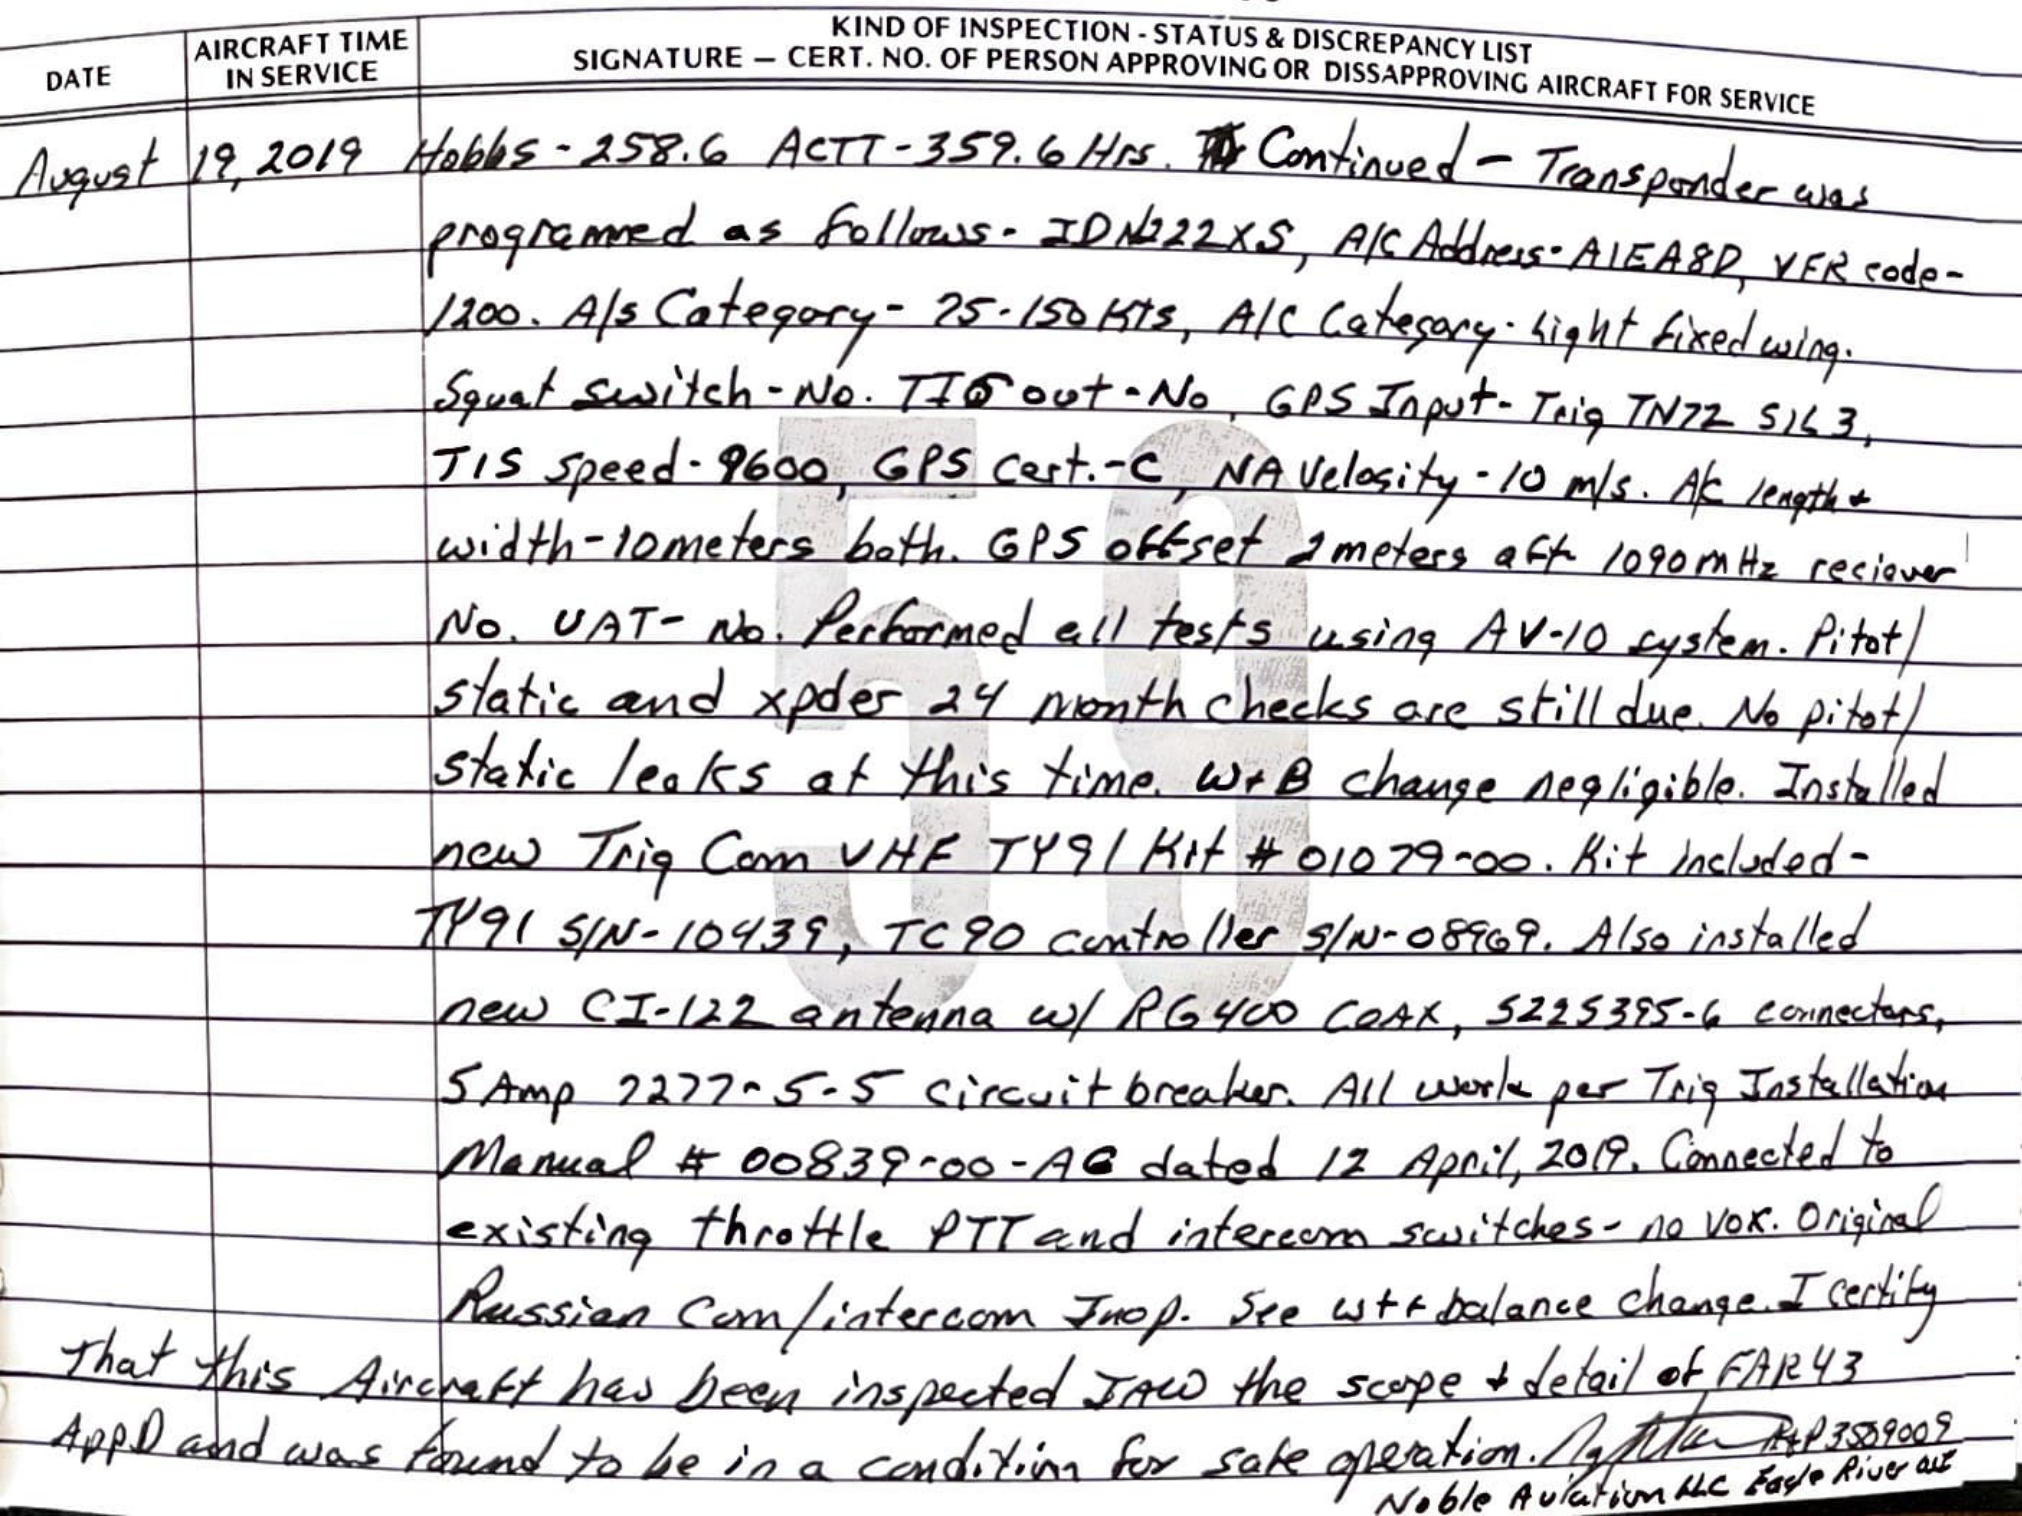 KIND OF INSPECTION - STATUS & DISCREPANCY LIST
DATE AIRCRAFT TIME IN SERVICE SIGNATURE — CERT. NO. OF PERSON APPROVING OR DISSAPPROVING AIRCRAFT FOR SERVICE
August 19, 2019 Hobbs - 258.6 ACTT - 359.6 Hrs. Continued - Transponder was
programmed as follows - ID N222XS, A/C Address - A1EA8D, VFR code -
1200. A/s Category - 75-150 Kts, A/C Category - Light fixed wing.
Squat switch - No. TIS out - No, GPS Input - Trig TN72 SIL 3,
TIS speed - 9600, GPS Cert. - C, NA Velosity - 10 m/s. A/C length +
width - 10 meters both. GPS offset 2 meters aft 1090 mHz reciever
No. UAT - No. Performed all tests using AV-10 system. Pitot/
static and xpder 24 month checks are still due. No pitot/
static leaks at this time. W+B change negligible. Installed
new Trig Com VHF TY91 Kit # 01079-00. Kit included -
TY91 S/N - 10439, TC90 controller S/N - 08969. Also installed
new CI-122 antenna w/ RG400 COAX, S225395-6 connectors,
5 Amp 7277-5-5 circuit breaker. All work per Trig Installation
Manual # 00839-00-AG dated 12 April, 2019. Connected to
existing throttle PTT and intercom switches - no VOX. Original
Russian Com/intercom Inop. See wt + balance change. I certify
That this Aircraft has been inspected IAW the scope + detail of FAR 43
App.D and was found to be in a condition for safe operation. A+P 3509009
Noble Aviation LLC Eagle River WI
59